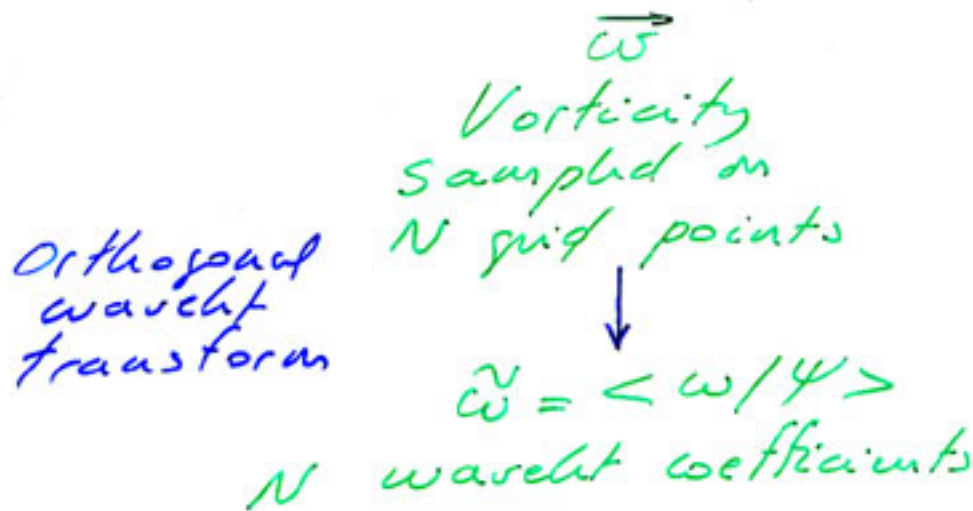 ω⃗
Vorticity
sampled on
N grid points
Orthogonal
wavelet
transform
ω̃ = < ω/ψ >
N wavelet coefficients